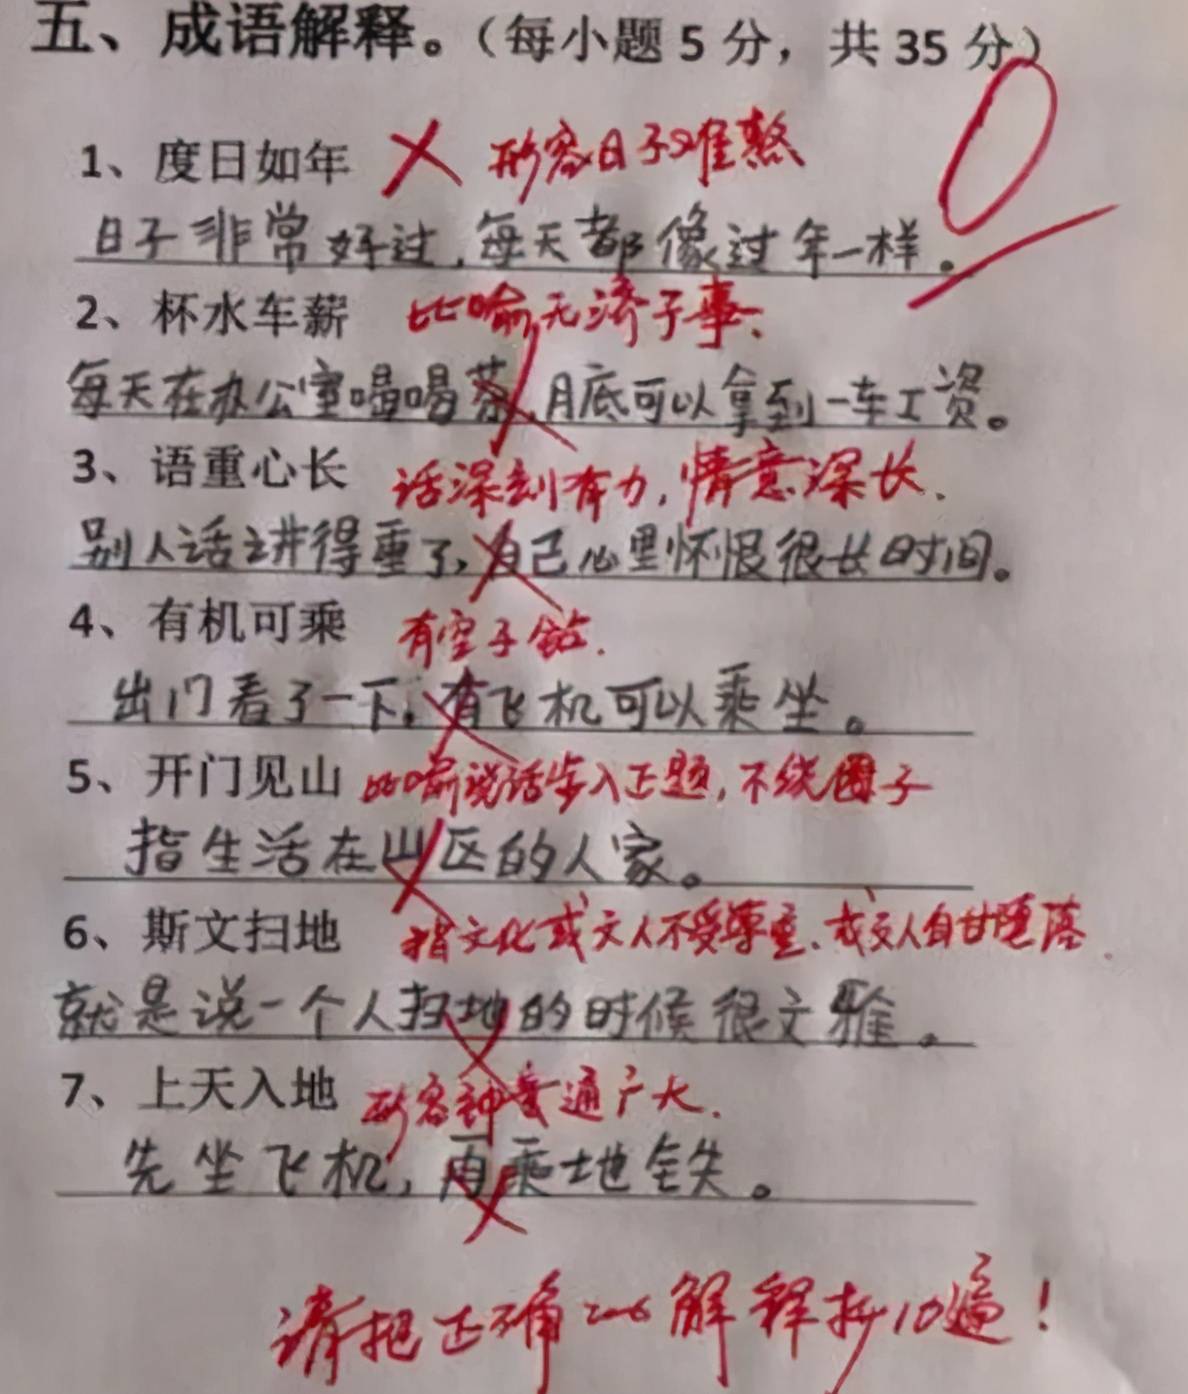 五、成语解释。（每小题5分，共35分）
0
1、度日如年 形容日子难熬
日子非常好过，每天都像过年一样。
2、杯水车薪 比喻无济于事.
每天在办公室喝喝茶，月底可以拿到一车工资。
3、语重心长 话深刻有力，情意深长.
别人话讲得重了，自己心里怀恨很长时间。
4、有机可乘 有空子钻.
出门看了一下，有飞机可以乘坐。
5、开门见山 比喻说话步入正题，不绕圈子
指生活在山区的人家。
6、斯文扫地 指文化或文人不受尊重、或文人自甘堕落.
就是说一个人扫地的时候很文雅。
7、上天入地 形容神通广大.
先坐飞机，再乘地铁。
请把正确的解释抄10遍！